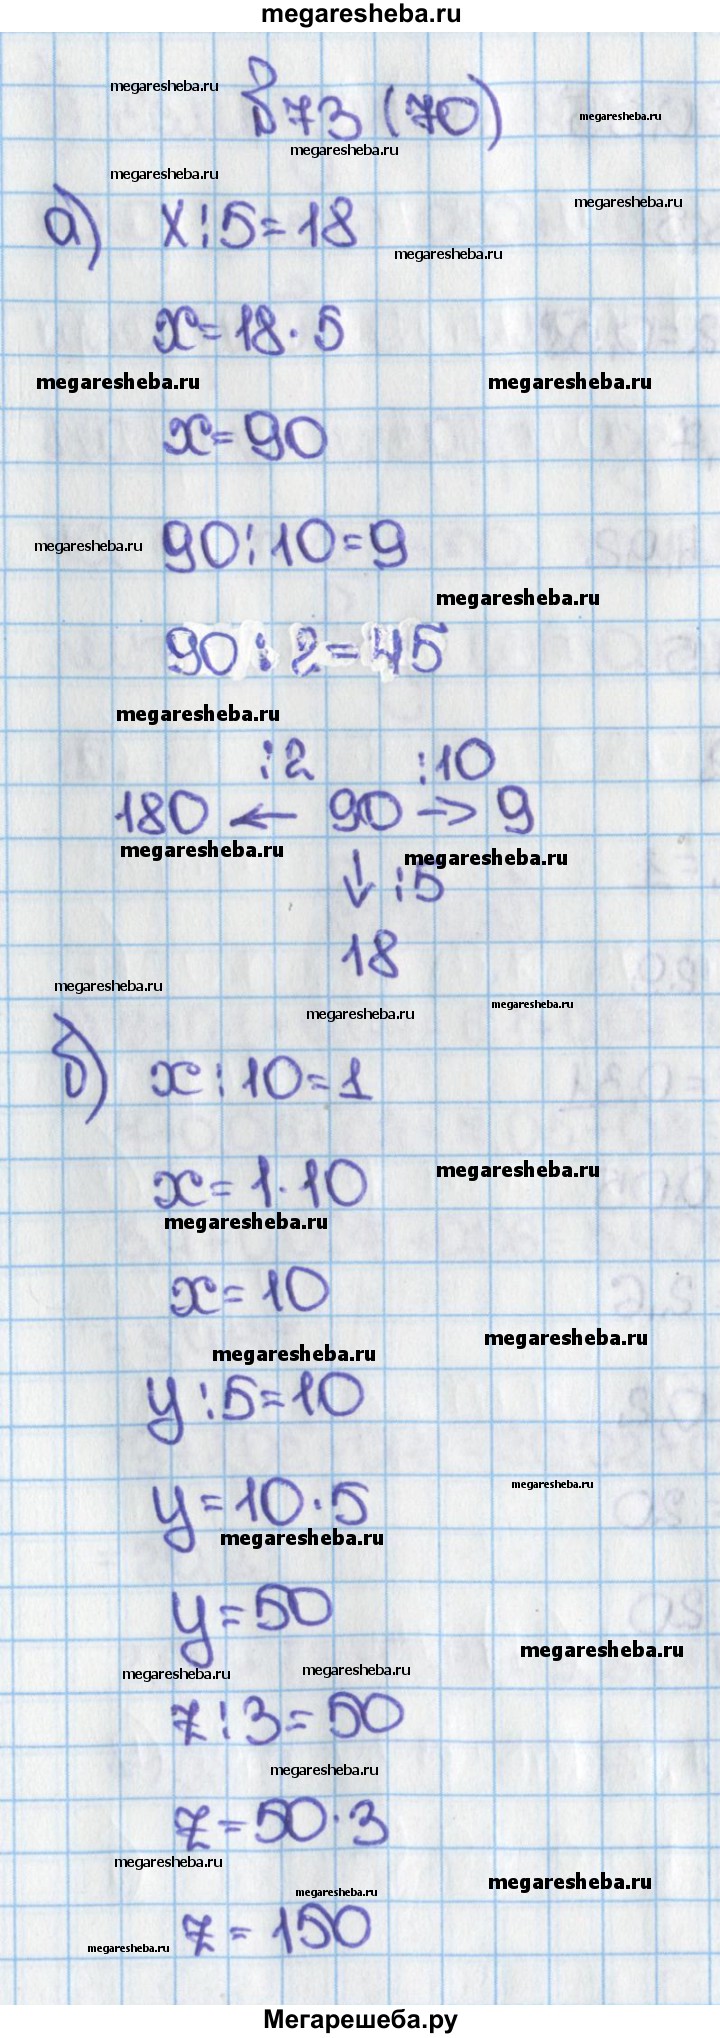 megaresheba.ru
megaresheba.ru
73 (70)
megaresheba.ru
megaresheba.ru
megaresheba.ru
megaresheba.ru
а) x:5=18
megaresheba.ru
x=18·5
megaresheba.ru megaresheba.ru
x=90
megaresheba.ru 90:10=9
megaresheba.ru
90:2=45
megaresheba.ru
:2 :10
180 ← 90 → 9
megaresheba.ru megaresheba.ru
↓ :5
18
megaresheba.ru megaresheba.ru
megaresheba.ru
б) x:10=1
megaresheba.ru
x=1·10
megaresheba.ru
x=10
megaresheba.ru
megaresheba.ru
y:5=10
megaresheba.ru
y=10·5
megaresheba.ru
y=50
megaresheba.ru
megaresheba.ru megaresheba.ru
z:3=50
megaresheba.ru
z=50·3
megaresheba.ru
megaresheba.ru
megaresheba.ru
z=150
megaresheba.ru
Мегарешеба.ру